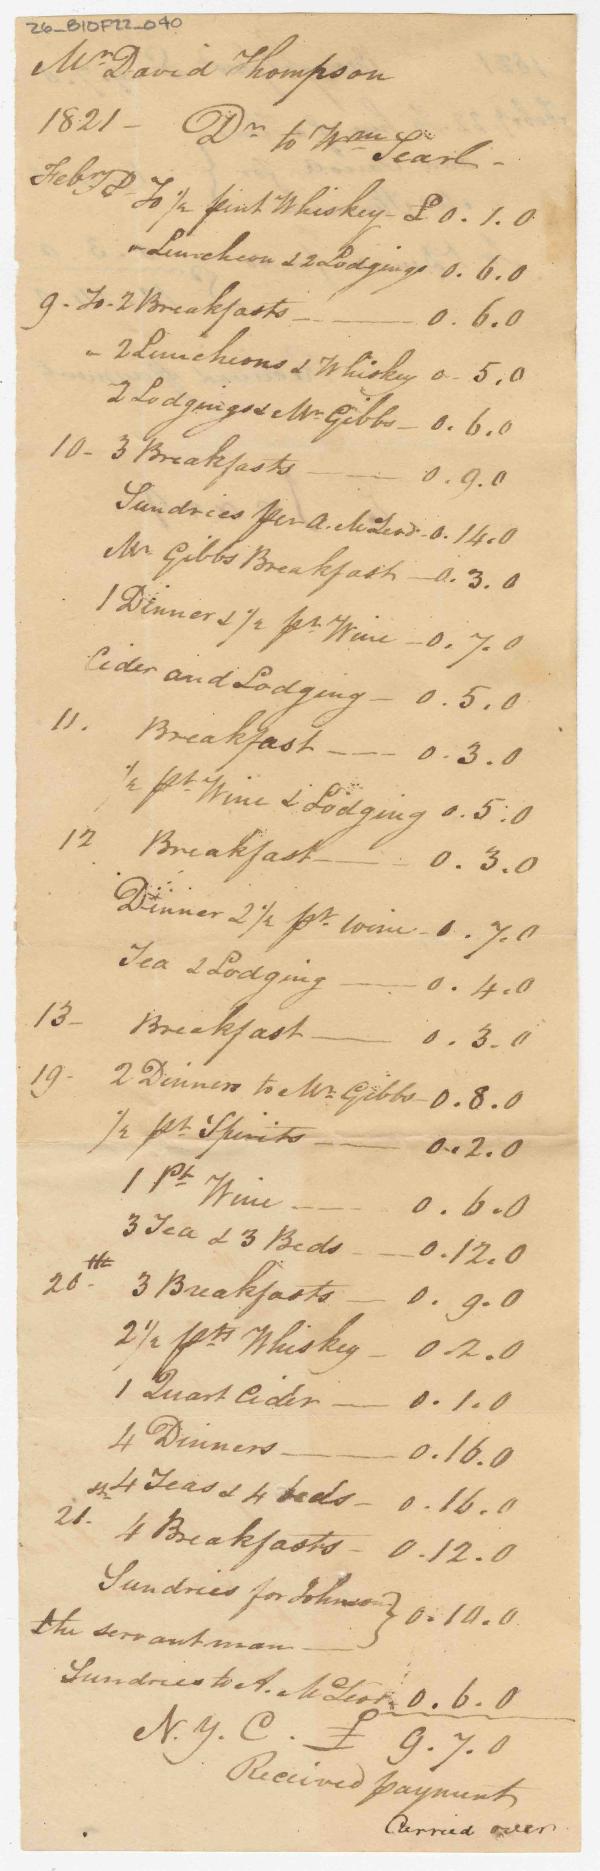 26_B10F22_040
Mr David Thompson
1821 - Dr to Wm Searl -
Febry 8 To 1/2 pint Whiskey - £ 0.1.0
" Luncheon & 2 Lodgings 0.6.0
9 - To - 2 Breakfasts - 0.6.0
" 2 Luncheons & Whiskey 0 - 5.0
2 Lodgings & Mr Gibbs - 0.6.0
10 - 3 Breakfasts - 0.9.0
Sundries per A. McLeod - 0.14.0
Mr Gibbs Breakfast - 0.3.0
1 Dinner & 1/2 pt Wine - 0.7.0
Cider and Lodging - 0.5.0
11. Breakfast - 0.3.0
1/2 pt Wine & Lodging 0.5.0
12 Breakfast - 0.3.0
Dinner & 1/2 pt wine - 0.7.0
Tea & Lodging - 0.4.0
13 - Breakfast - 0.3.0
19 - 2 Dinners to Mr Gibbs - 0.8.0
1/2 pt Spirits - 0.2.0
1 Pt Wine - 0.6.0
3 Tea & 3 Beds - 0.12.0
20th - 3 Breakfasts - 0.9.0
2 1/2 pts Whiskey - 0.2.0
1 Quart Cider - 0.1.0
4 Dinners - 0.16.0
4 Teas & 4 beds - 0.16.0
21st 4 Breakfasts - 0.12.0
Sundries for Johnson
the servant man - } 0.10.0
Sundries to A. McLeod 0.6.0
N.Y.C. £ 9.7.0
Received payment
Carried over